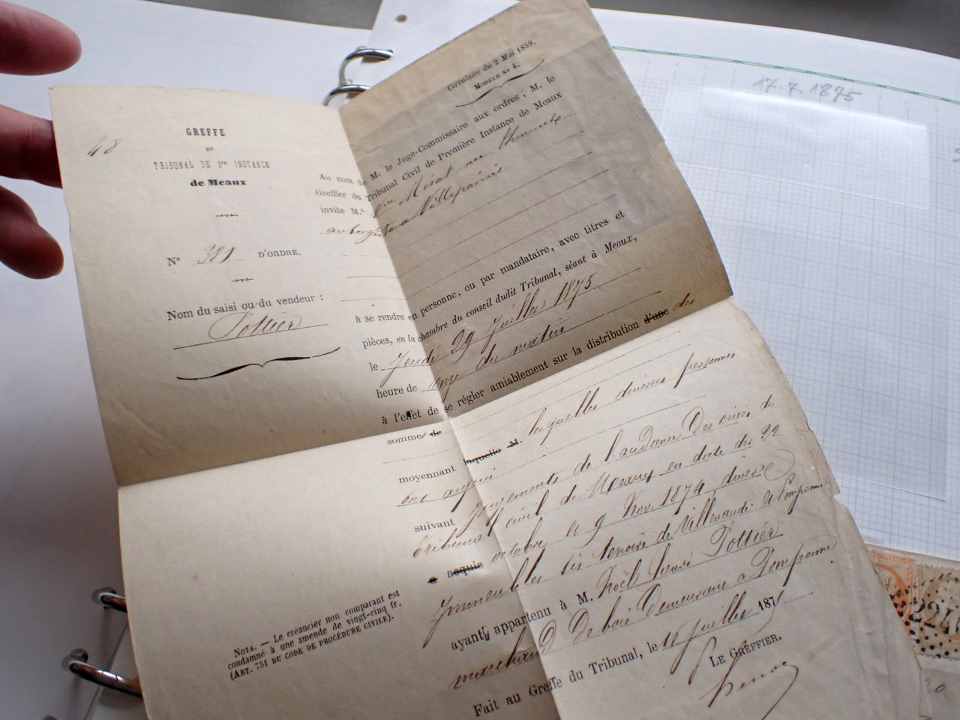 17.7.1875
48
GREFFE
DU
TRIBUNAL DE 1re INSTANCE
de Meaux
N° 381 D'ORDRE.
Nom du saisi ou du vendeur :
Pottier
NOTA. — Le créancier non comparant est
condamné à une amende de vingt-cinq fr.
(ART. 751 DU CODE DE PROCÉDURE CIVILE).
Circulaire du 2 Mai 1859.
MODÈLE N° 4.
Au nom de M. le Juge-Commissaire aux ordres, M. le
Greffier du Tribunal Civil de Première Instance de Meaux
invite M.
aubergiste à Villeparisis
à se rendre en personne, ou par mandataire, avec titres et
pièces, en la chambre du conseil dudit Tribunal, séant à Meaux,
le Jeudi 29 Juillet 1875
heure de onze du matin
à l'effet de se régler amiablement sur la distribution d'une des
somme de laquelle M. lesquelles diverses personnes
moyennant
ont acquis
suivant jugements de l'audience des criées du
tribunal civil de Meaux en date des 22
octobre et 9 Nov. 1874, divers
Immeubles sis terroirs de Villevaudé & Pomponne
ayant appartenu à M. Noël Pottier
marchand de bois demeurant à Pomponne
Fait au Greffe du Tribunal, le juillet 187
LE GREFFIER.
224